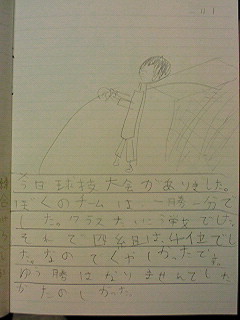 11.1
今日球技大会がありました。
ぼくのチームは一勝一分で
した。クラスたいこう女でした。
それで四年日は、4位でし
た。なのでくやしかったです。
ゆう勝はなりませんでした
がたのしかった